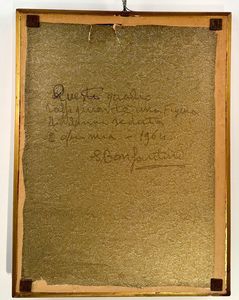 Questo quadro
rappresenta una figura
di donna seduta
è opera mia - 1964
S. Bonfantini